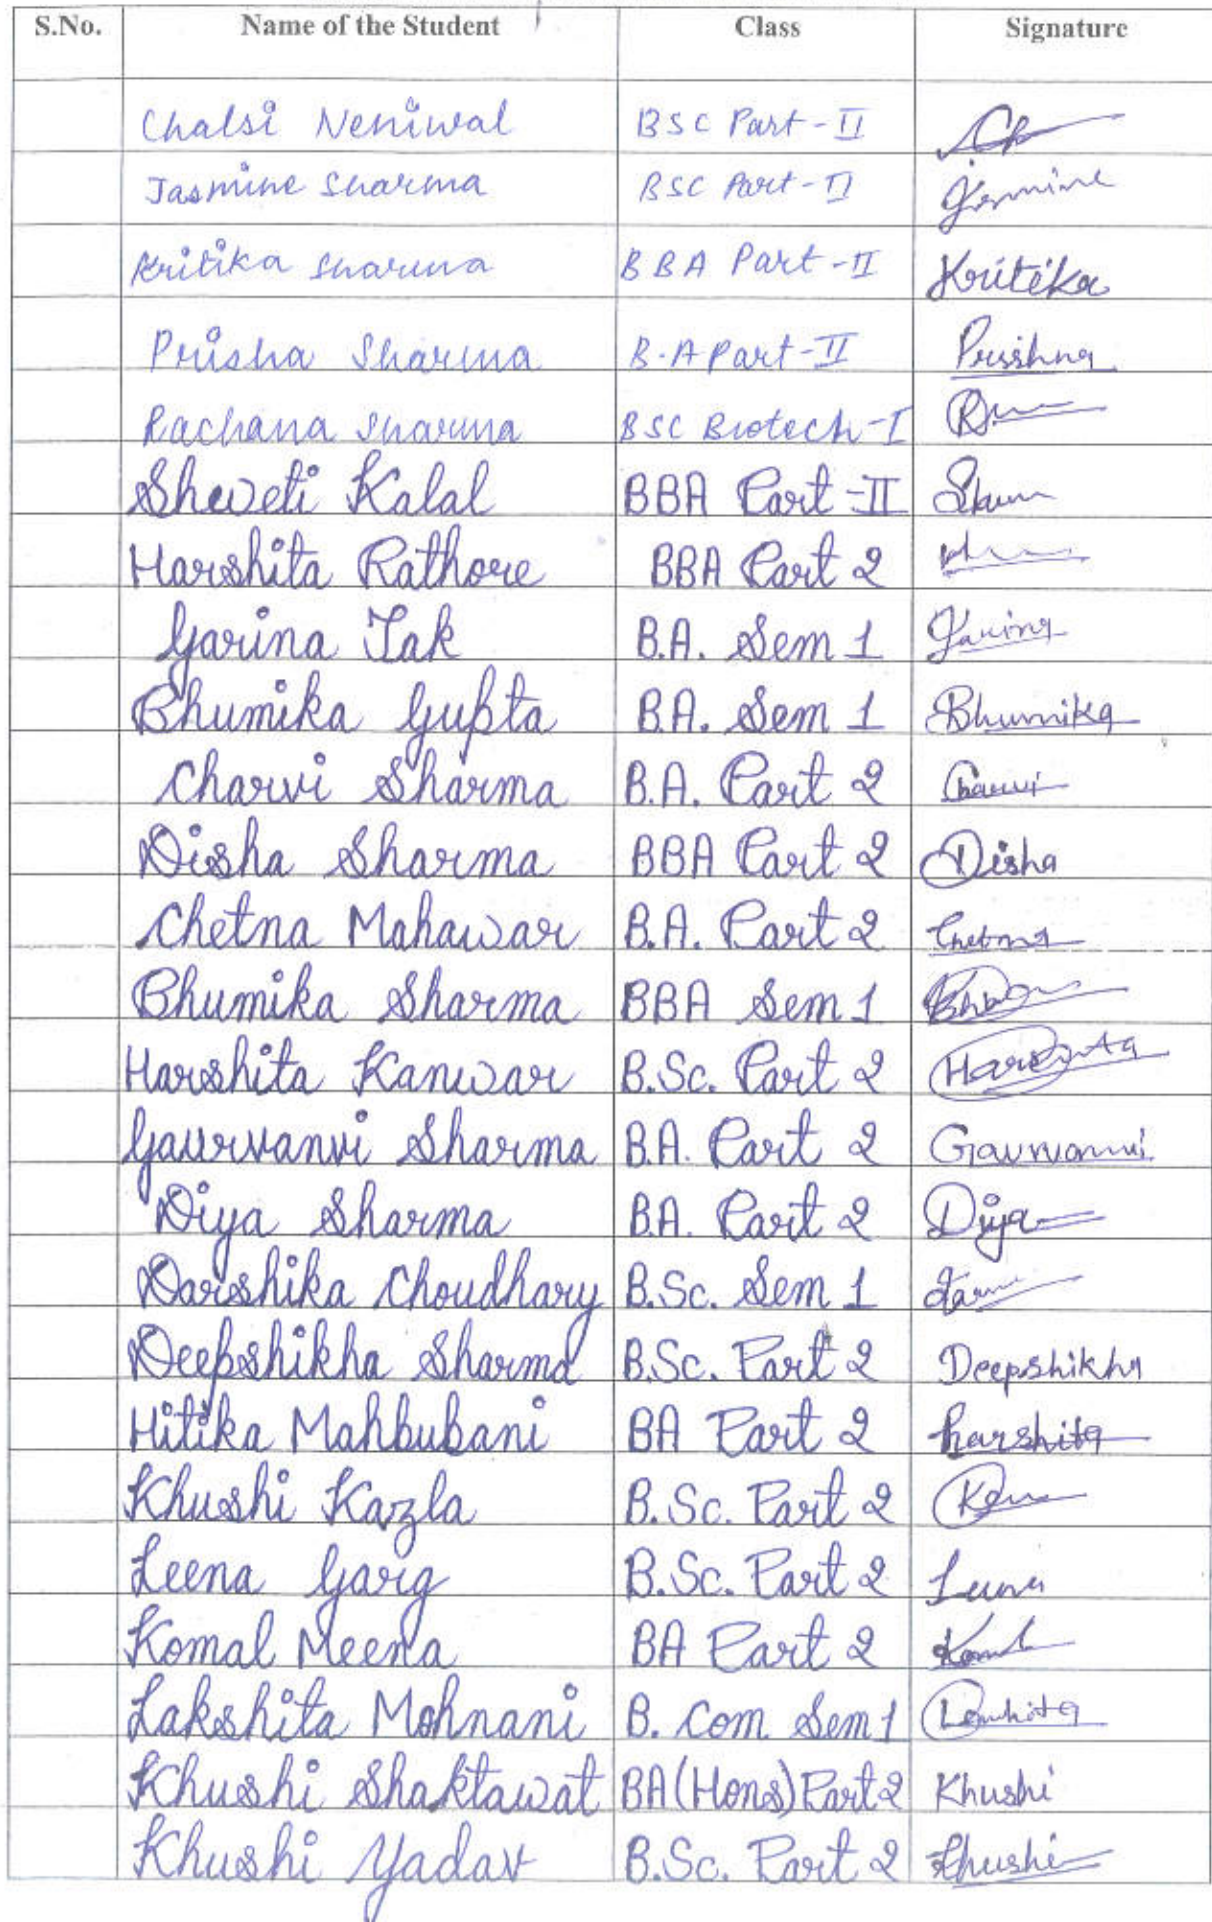 S.No. Name of the Student Class Signature
Chalsi Neniwal BSC Part-II
Jasmine Sharma BSC Part-II Jasmine
Kritika Sharma BBA Part-II Kritika
Prisha Sharma B.A Part-II
Rachana Sharma BSC Biotech-I
Shweti Kalal BBA Part-II
Harshita Rathore BBA Part 2
Garina Tak B.A. Sem 1 Garina
Bhumika Gupta B.A. Sem 1 Bhumika
Charvi Sharma B.A. Part 2 Charvi
Disha Sharma BBA Part 2 Disha
Chetna Mahawar B.A. Part 2 Chetna
Bhumika Sharma BBA Sem 1
Harshita Kanwar B.Sc. Part 2 Harshita
Gaurvanvi Sharma B.A. Part 2 Gaurvanvi
Diya Sharma B.A. Part 2 Diya
Darshika Choudhary B.Sc. Sem 1
Deepshikha Sharma B.Sc. Part 2 Deepshikha
Hitika Mahbubani BA Part 2 harshita
Khushi Kazla B.Sc. Part 2
Leena Garg B.Sc. Part 2 Leena
Komal Meena BA Part 2 Komal
Lakshita Mohnani B. Com Sem 1
Khushi Shaktawat BA(Hons) Part 2 Khushi
Khushi Yadav B.Sc. Part 2 Khushi